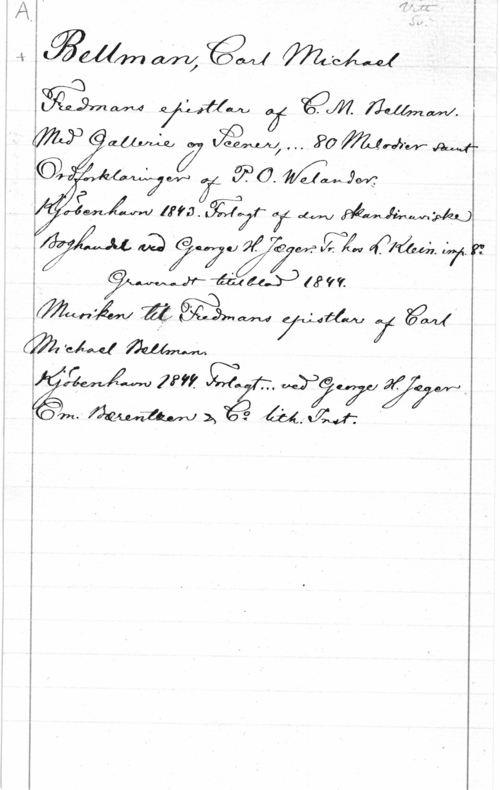 A
Vitt
Sv.
+ Bellman, Carl Michael
Fredmans epistlar af C. M. Bellman.
Med Gallerie og Scener, ... 80 Melodier samt
Ordforklaringer af P. O. Welander.
Kjöbenhavn 1843. Forlagt af den skandinaviske
Boghandel ved George H. Jæger. Tr. hos L. Klein. imp. 8º
Graveradt titelblad 1844.
Musiken til Fredmans epistlar af Carl
Michael Bellman.
Kjöbenhavn 1844. Forlagt... ved George H. Jæger.
Em. Bærentzen & Cº lith. Inst.